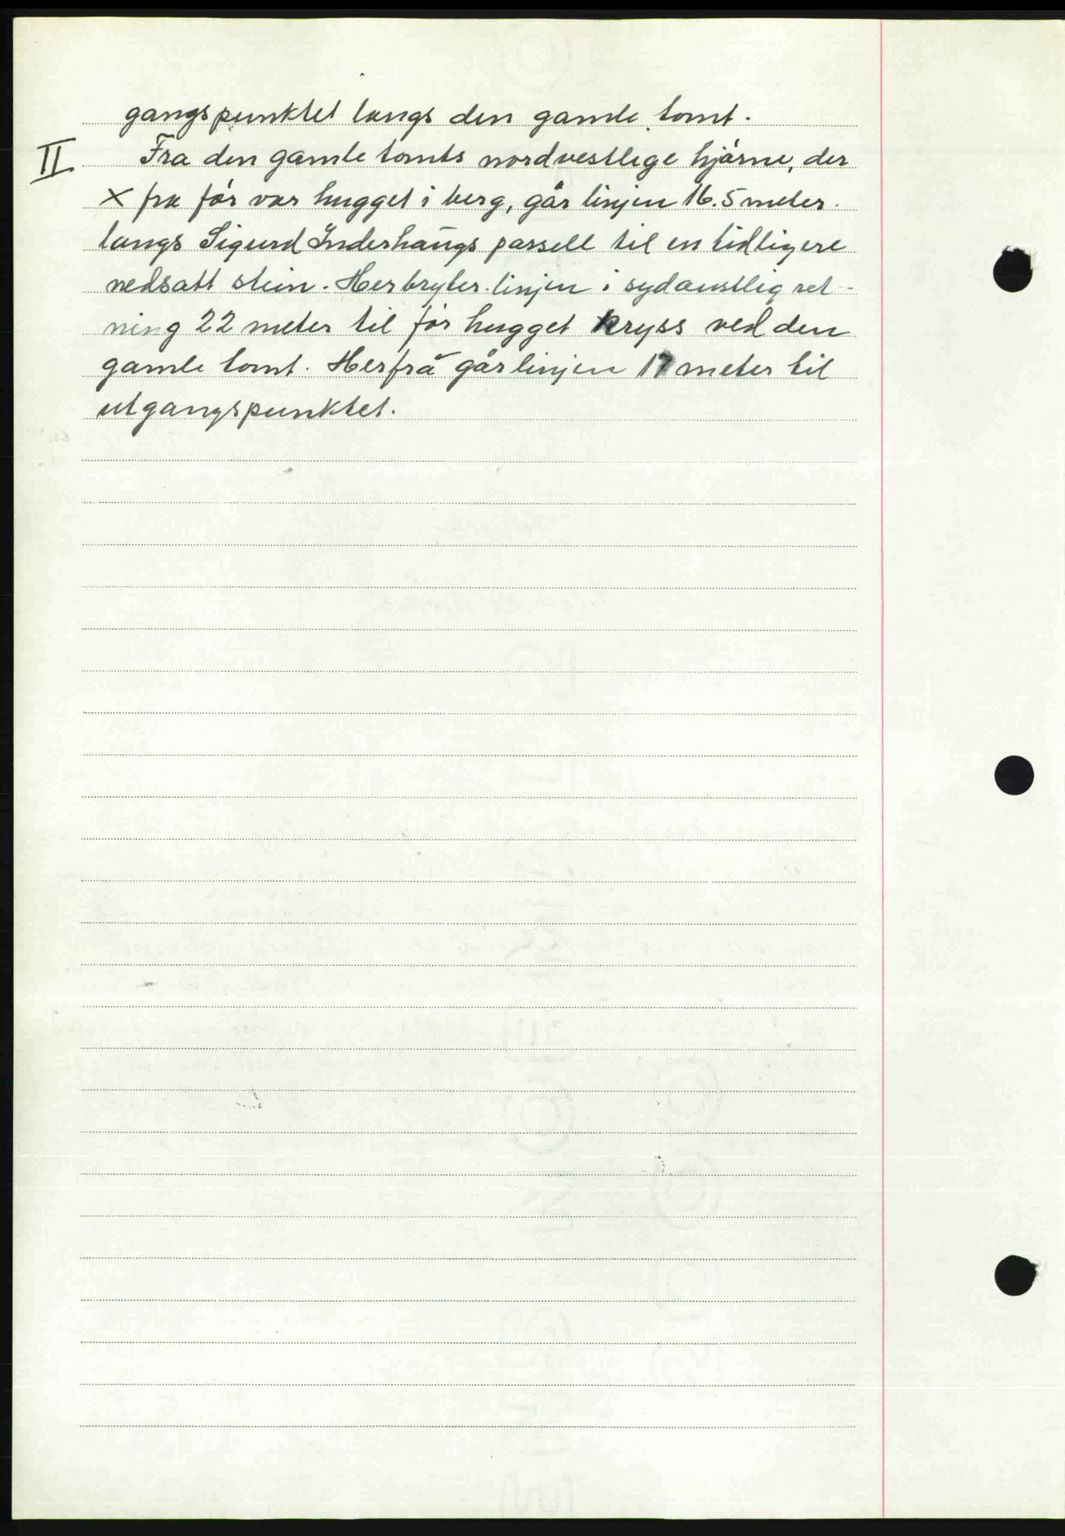 gangspunktet langs den gamle tomt.
II Fra den gamle tomts nordvestlige hjørne, der
X fra før var hugget i berg, går linjen 16.5 meter
langs Sigurd Inderhaugs parsell til en tidligere
nedsatt stein. Her bryter linjen i sydaustlig ret-
ning 22 meter til før hugget kryss ved den
gamle tomt. Herfrå går linjen 17 meter til
utgangspunktet.